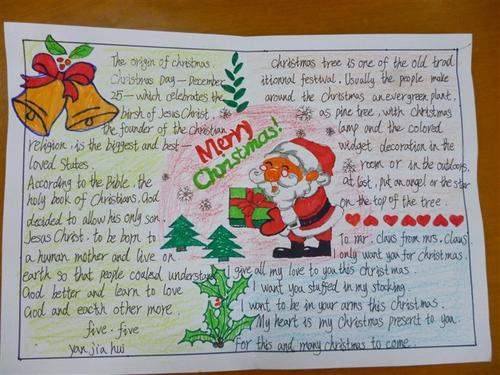 The origin of christmas.
Christmas Day — December
25 — which celebrates the
birsh of Jesus Christ,
the founder of the Christian
religion, is the biggest and best —
loved States.
According to the Bible, the
holy book of Christians, God
decided to allow his only son,
Jesus Christ, to be born to
a human mother and live on
earth so that people coaled understand
God better and learn to love
God and eacth other more.
five. five
yan jia hui
Merry
Christmas!
Christmas tree is one of the old trad
itionnal festival. Usually the people make
around the Christmas an evergreen plant,
as pine tree, with Christmas
lamp and the colored
widget decoration in the
room or in the outdoors,
at last, put an angel or the star
on the top of the tree.
To mr. claus from mrs. Claus
I only want you for christmas.
I give all my love to you this christmas.
I want you stuffed in my stocking.
I want to be in your arms this Christmas.
My heart is my Christmas present to you.
For this and many christmas to come.